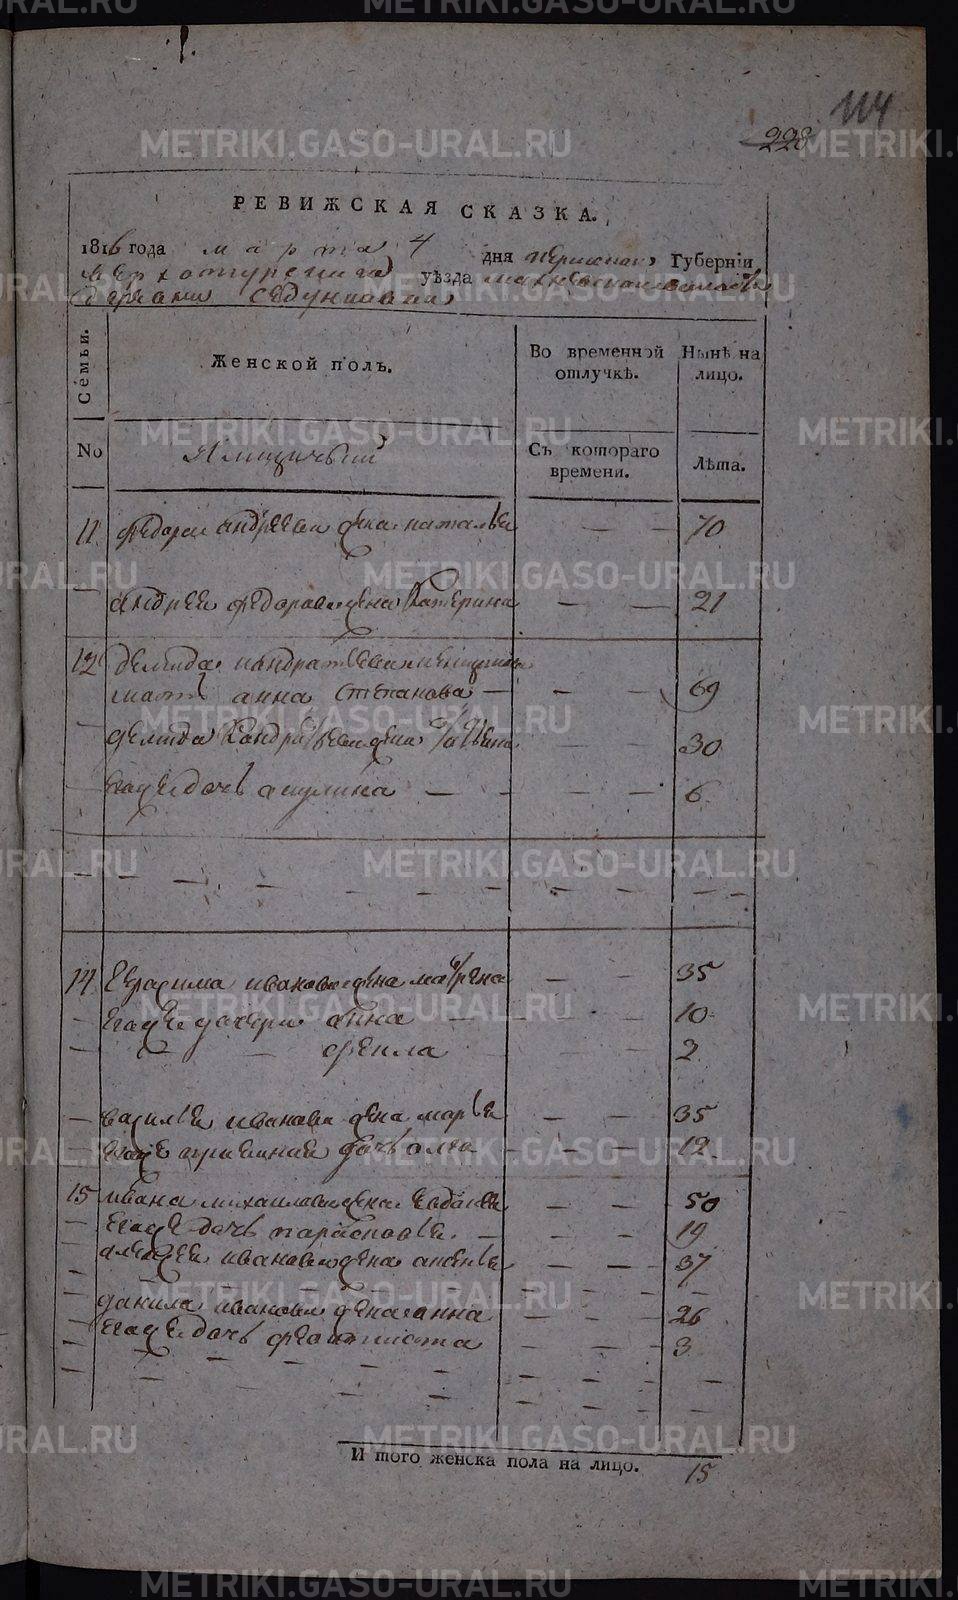 114
228
РЕВИЖСКАЯ СКАЗКА.
1816 года марта 4 дня пермской Губерніи
верхотурскаго уѣзда махневской волости
деревни
Семьи. Женской полъ. Во временной отлучкѣ. Нынѣ на лицо.
No Ямщичьей Съ котораго времени. Лѣта.
11 федора андреева жена наталья — — 70
— андрея федорова жена катерина — — 21
12 демида кондратьева
мать анна степанова — — — 69
— демида кондратьева жена — — 30
— его же дочь акулина — — — — 6
— — — — — — — — — —
14 герасима иванова жена матрена — — 35
— его же дочери анна — — — 10
— — фекла — — 2
— василья иванова жена марья — — 35
— его же дочь олга — — — 12
15 ивана михайлова жена — — 50
— его же дочь парасковья — — — 19
— алексея иванова жена аксенья — — 37
— данила иванова жена анна — — 26
— его же дочь феоктиста — — 3
И того женска пола на лицо. 15
METRIKI.GASO-URAL.RU